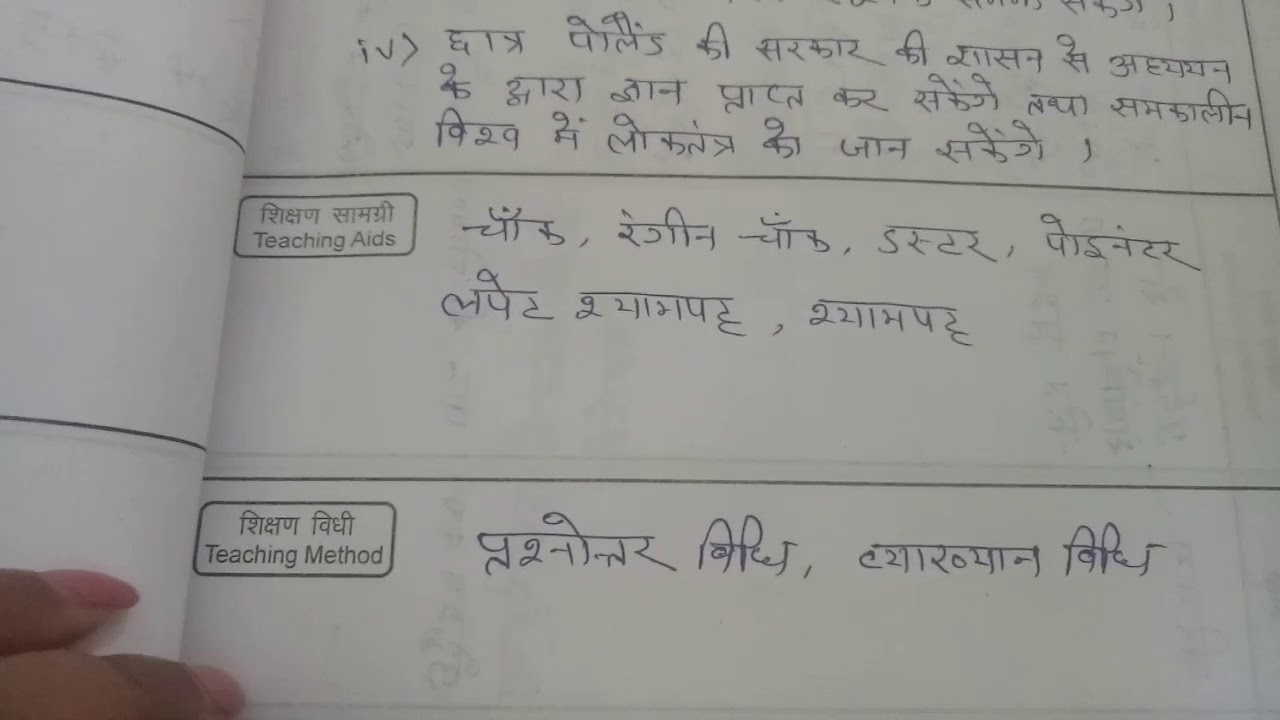 iv) छात्र पोलैंड की सरकार की शासन से अध्ययन
के द्वारा ज्ञान प्राप्त कर सकेंगे तथा समकालीन
विश्व में लोकतंत्र को जान सकेंगे ।
शिक्षण सामग्री
Teaching Aids
चॉक, रंगीन चॉक, डस्टर, पोइनंटर
लपेट श्यामपट्ट , श्यामपट्ट
शिक्षण विधी
Teaching Method
प्रश्नोत्तर विधि, व्याख्यान विधि